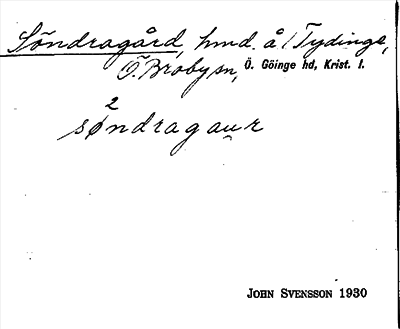 Söndragård, hmd. å /Tydinge,
Ö. Broby sn, Ö. Göinge hd, Krist. l.
2
søndragau̯r
JOHN SVENSSON 1930